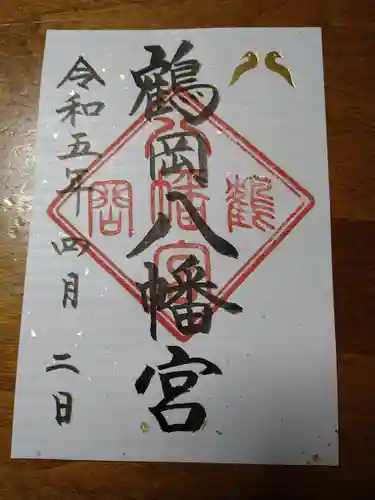 鶴岡八幡宮
令和五年四月二日
鶴岡
八幡宮